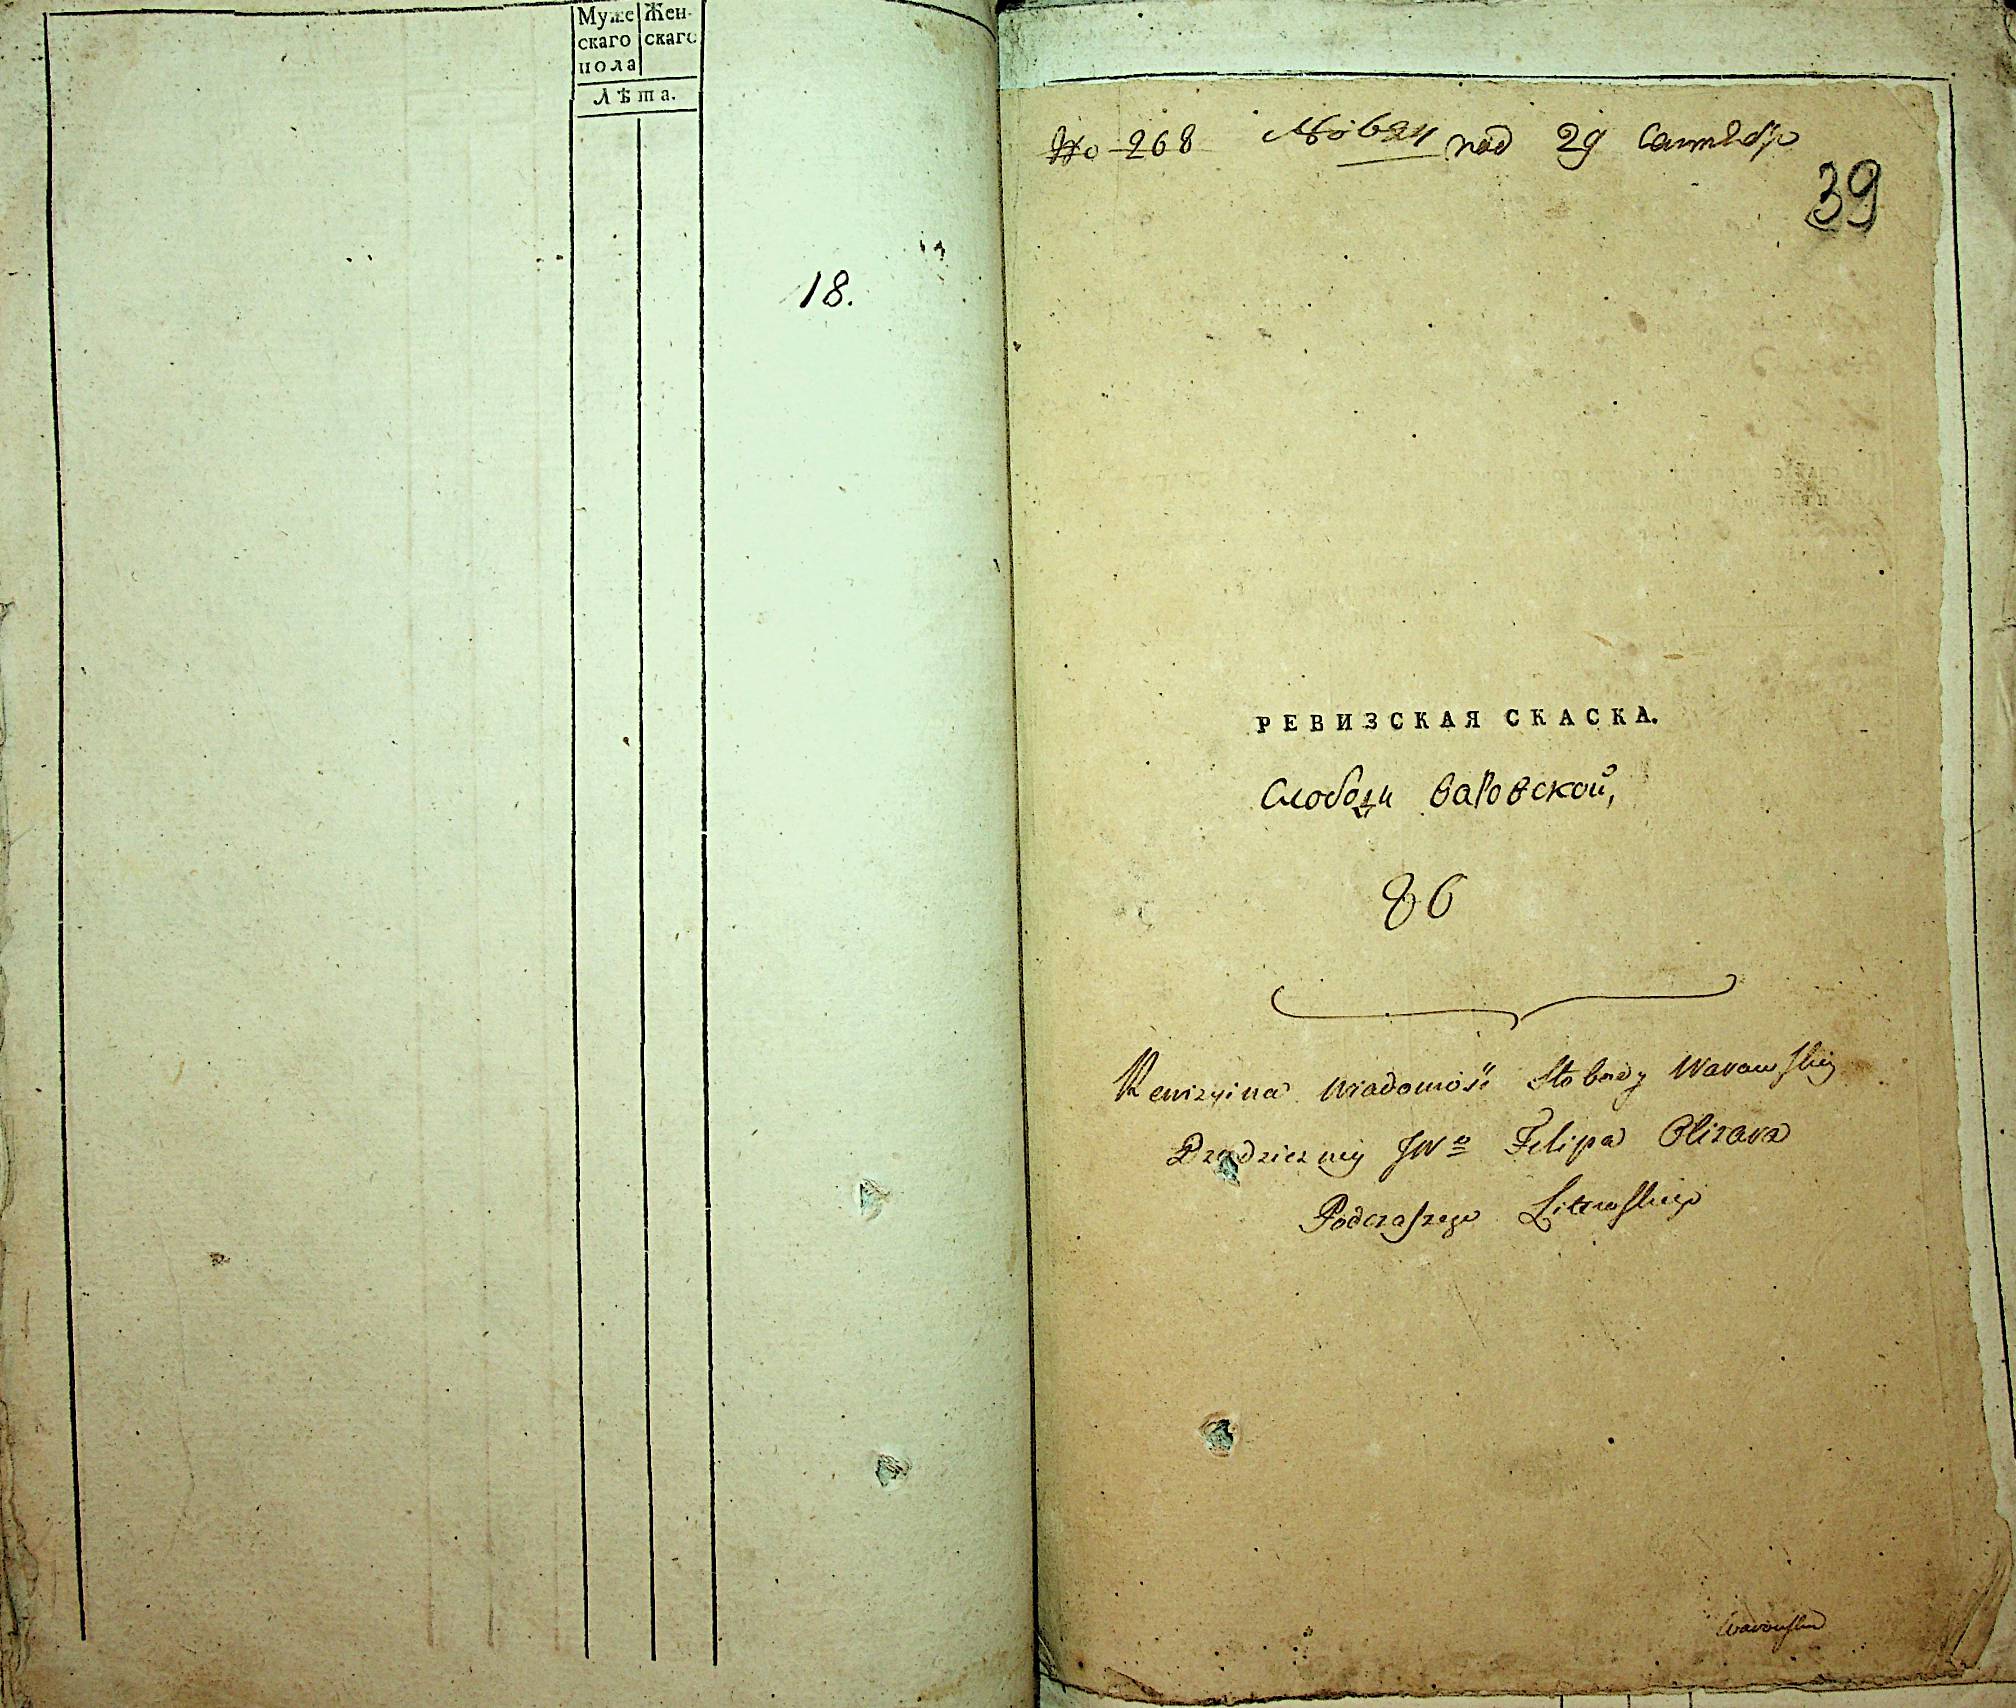 Муже Жен-
скаго скаго
пола
Лѣта.
18.
No 268 под 29 Сентебр
39
РЕВИЗСКАЯ СКАСКА.
Слободи Варовской,
86
Rewizyina Wiadomość Słobody Warowskiey
Dziedziczney JWo Filipa Olizara
Podczaszego Litewskiego